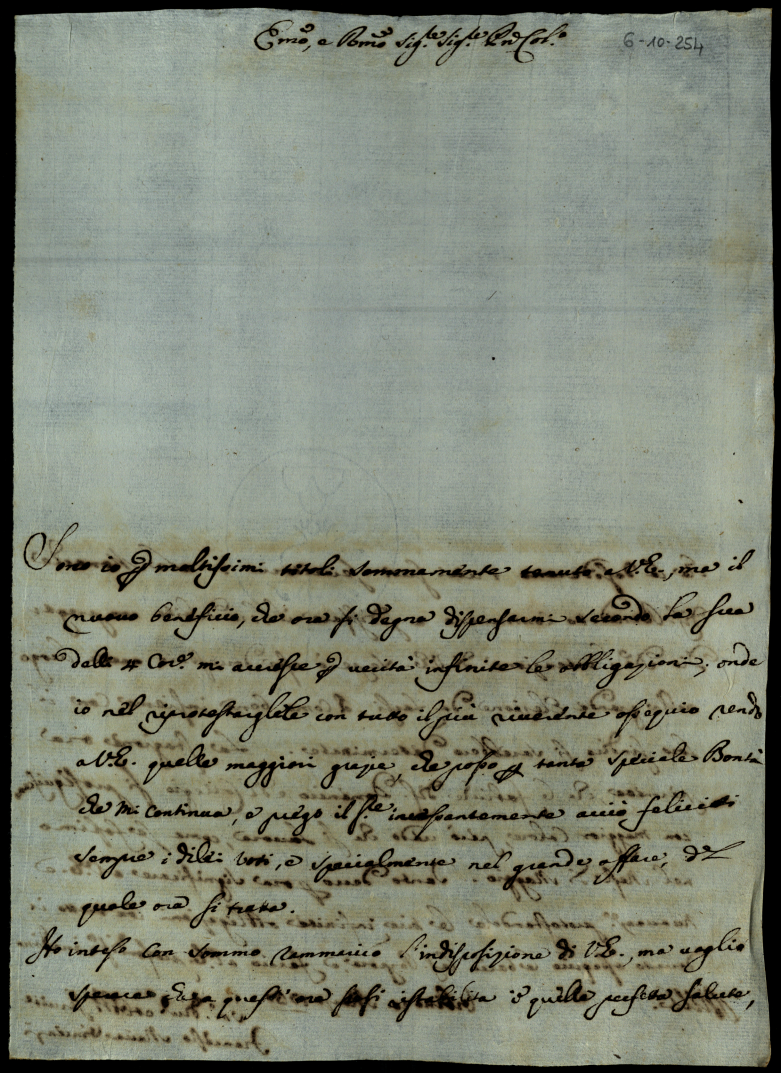 Emo, e Rmo Sig.re Sig.re Pne Col.mo
6-10-254
Sono io p moltissimi titoli sommamente tenuto a V.E., ma il
nuovo beneficio, che ora si degna dispensarmi secondo la sua
delli 4 Cor.e mi accresce p verità infinite le obbligazioni; onde
io nel riprotestarglele con tutto il più riverente ossequio rendo
a V.E. quelle maggiori grazie, che posso p tanta speciale Bontà
che mi continua, e prego il S.re incessantemente acciò feliciti
sempre i di lei voti, e specialmente nel grande affare, del
quale ora si tratta.
Ho inteso con sommo rammarico l'indisposizione di V.E., ma voglio
sperare che a quest'ora siasi ristabilita in quella perfetta salute,